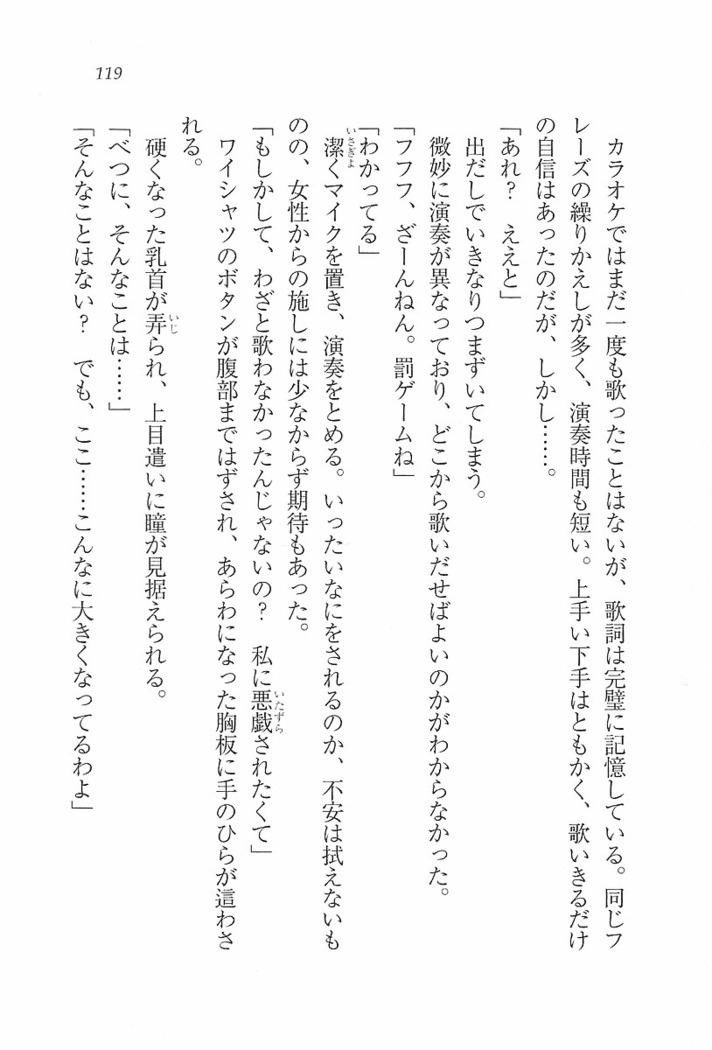 119
カラオケではまだ一度も歌ったことはないが、歌詞は完璧に記憶している。同じフ
レーズの繰りかえしが多く、演奏時間も短い。上手い下手はともかく、歌いきるだけ
の自信はあったのだが、しかし……。
「あれ？　ええと」
出だしでいきなりつまずいてしまう。
微妙に演奏が異なっており、どこから歌いだせばよいのかがわからなかった。
「フフフ、ざーんねん。罰ゲームね」
「わかってる」
潔くマイクを置き、演奏をとめる。いったいなにをされるのか、不安は拭えないも
いさぎよ
のの、女性からの施しには少なからず期待もあった。
「もしかして、わざと歌わなかったんじゃないの？　私に悪戯されたくて」
いたずら
ワイシャツのボタンが腹部まではずされ、あらわになった胸板に手のひらが這わさ
れる。
硬くなった乳首が弄られ、上目遣いに瞳が見据えられる。
いじ
「べつに、そんなことは……」
「そんなことはない？　でも、ここ……こんなに大きくなってるわよ」